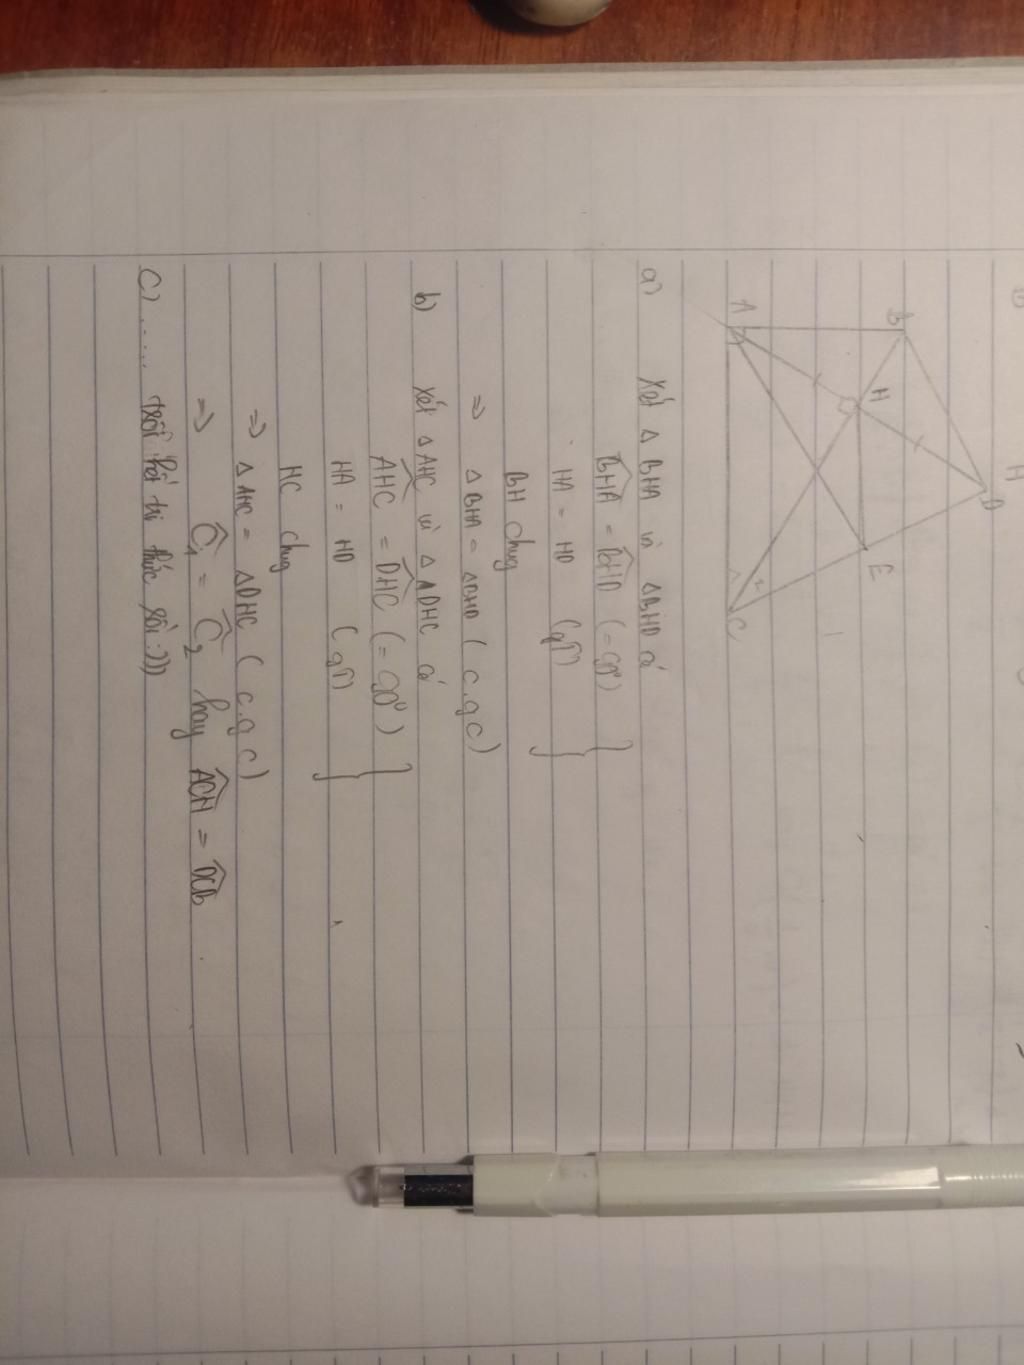 B
H
D
E
A
C
2
a) Xét Δ BHA và ΔBHD có
BHA = BHD (= 90°)
HA = HD (gt)
BH chug
=> Δ BHA = ΔBHD ( c.g c)
b) Xét Δ AHC và Δ ADHC có
AHC = DHC (= 90°)
HA = HD (gt)
HC chug
=> Δ AHC = ΔDHC ( c.g c)
=> C1 = C2 hay ACH = DCB
C) ...... trôi hết tri thức rồi :)))